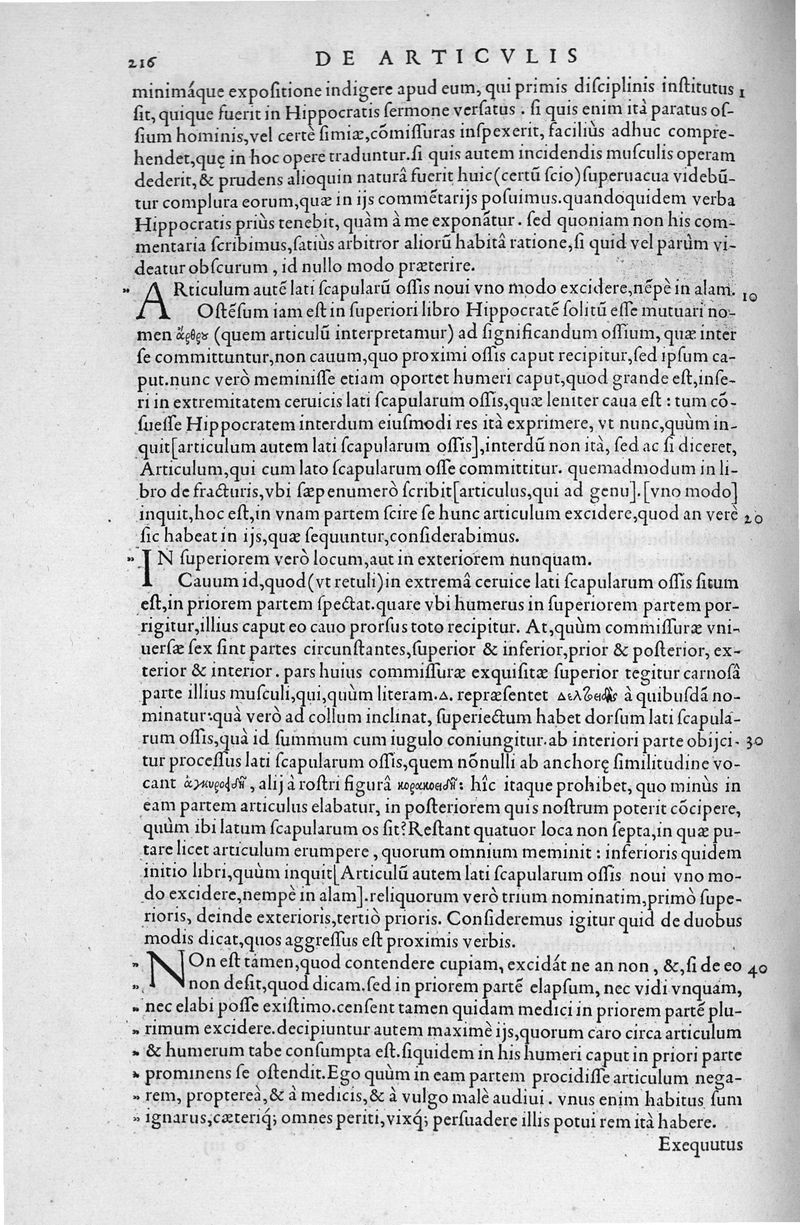 216 DE ARTICVLIS
minimáque expoſitione indigere apud eum, qui primis diſciplinis inſtitutus 1
ſit, quique fuerit in Hippocratis ſermone verſatus . ſi quis enim ità paratus oſ-
ſium hominis, vel certè ſimiæ, cōmiſſuras inſpexerit, faciliùs adhuc compre-
hendet, quę in hoc opere traduntur. ſi quis autem incidendis muſculis operam
dederit, & prudens alioquin naturâ fuerit huic (certū ſcio) ſuperuacua videbū-
tur complura eorum, quæ in ijs commētarijs poſuimus. quandoquidem verba
Hippocratis priùs tenebit, quàm à me exponātur . ſed quoniam non his com-
mentaria ſcribimus, ſatiùs arbitror aliorū habitâ ratione, ſi quid vel parùm vi-
deatur obſcurum , id nullo modo præterire.
" ARticulum autē lati ſcapularū oſſis noui vno modo excidere, nēpè in alam. 10
Oſtēſum iam eſt in ſuperiori libro Hippocratē ſolitū eſſe mutuari no-
men ἄρθρου (quem articulū interpretamur) ad ſignificandum oſſium, quæ inter
ſe committuntur, non cauum, quo proximi oſſis caput recipitur, ſed ipſum ca-
put. nunc verò meminiſſe etiam oportet humeri caput, quod grande eſt, inſe-
ri in extremitatem ceruicis lati ſcapularum oſſis, quæ leniter caua eſt : tum cō-
ſueſſe Hippocratem interdum eiuſmodi res ità exprimere, vt nunc, quùm in-
quit [articulum autem lati ſcapularum oſſis], interdū non ità, ſed ac ſi diceret,
Articulum, qui cum lato ſcapularum oſſe committitur. quemadmodum in li-
bro de fracturis, vbi ſæpenumerò ſcribit [articulus, qui ad genu]. [vno modo]
inquit, hoc eſt, in vnam partem ſcire ſe hunc articulum excidere, quod an verè 20
ſic habeat in ijs, quæ ſequuntur, conſiderabimus.
" IN ſuperiorem verò locum, aut in exteriorem nunquam.
Cauum id, quod (vt retuli) in extremâ ceruice lati ſcapularum oſſis ſitum
eſt, in priorem partem ſpectat. quare vbi humerus in ſuperiorem partem por-
rigitur, illius caput eo cauo prorſus toto recipitur. At, quùm commiſſuræ vni-
uerſæ ſex ſint partes circunſtantes, ſuperior & inferior, prior & poſterior, ex-
terior & interior . pars huius commiſſuræ exquiſitæ ſuperior tegitur carnoſâ
parte illius muſculi, qui, quùm literam .Δ. repræſentet δελτοειδὴς à quibuſdā no-
minatur: quà verò ad collum inclinat, ſuperiectum habet dorſum lati ſcapula-
rum oſſis, quà id ſummum cum iugulo coniungitur. ab interiori parte obijci- 30
tur proceſſus lati ſcapularum oſſis, quem nōnulli ab anchorę ſimilitudine vo-
cant ἀγκυροειδῆ, alij à roſtri figurâ κορακοειδῆ: hîc itaque prohibet, quo minùs in
eam partem articulus elabatur, in poſteriorem quis noſtrum poterit cōcipere,
quùm ibi latum ſcapularum os ſit? Reſtant quatuor loca non ſepta, in quæ pu-
tare licet articulum erumpere , quorum omnium meminit : inferioris quidem
initio libri, quùm inquit [Articulū autem lati ſcapularum oſſis noui vno mo-
do excidere, nempè in alam]. reliquorum verò trium nominatim, primò ſupe-
rioris, deinde exterioris, tertiò prioris. Conſideremus igitur quid de duobus
modis dicat, quos aggreſſus eſt proximis verbis.
" NOn eſt tamen, quod contendere cupiam, excidát ne an non , &, ſi de eo 40
" non deſit, quod dicam. ſed in priorem partē elapſum, nec vidi vnquam,
" nec elabi poſſe exiſtimo. cenſent tamen quidam medici in priorem partē plu-
" rimum excidere. decipiuntur autem maximè ijs, quorum caro circa articulum
" & humerum tabe conſumpta eſt. ſiquidem in his humeri caput in priori parte
" prominens ſe oſtendit. Ego quùm in eam partem procidiſſe articulum nega-
" rem, proptereà, & à medicis, & à vulgo malè audiui . vnus enim habitus ſum
" ignarus, cæteriq́; omnes periti, vixq́; perſuadere illis potui rem ità habere.
Exequutus